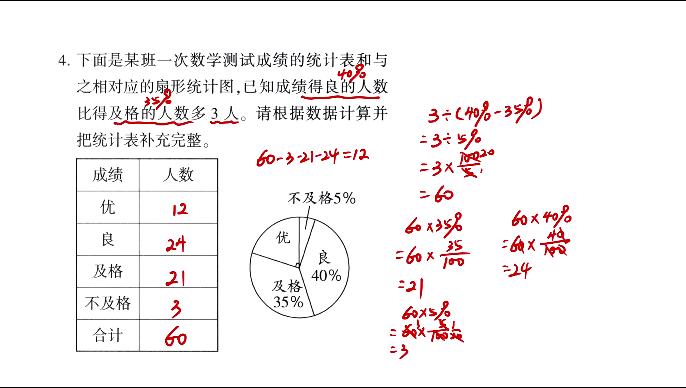 4. 下面是某班一次数学测试成绩的统计表和与
40%
之相对应的扇形统计图,已知成绩得良的人数
35%
比得及格的人数多 3 人。请根据数据计算并
把统计表补充完整。
60-3-21-24=12
成绩 人数
优 12
良 24
及格 21
不及格 3
合计 60
不及格5%
优
良
40%
及格
35%
3÷(40%-35%)
=3÷5%
=3×100/5 20 1
=60
60×35%
=60×35/100
=21
60×40%
=60×40/100
=24
60×5%
=60×5/100
=3